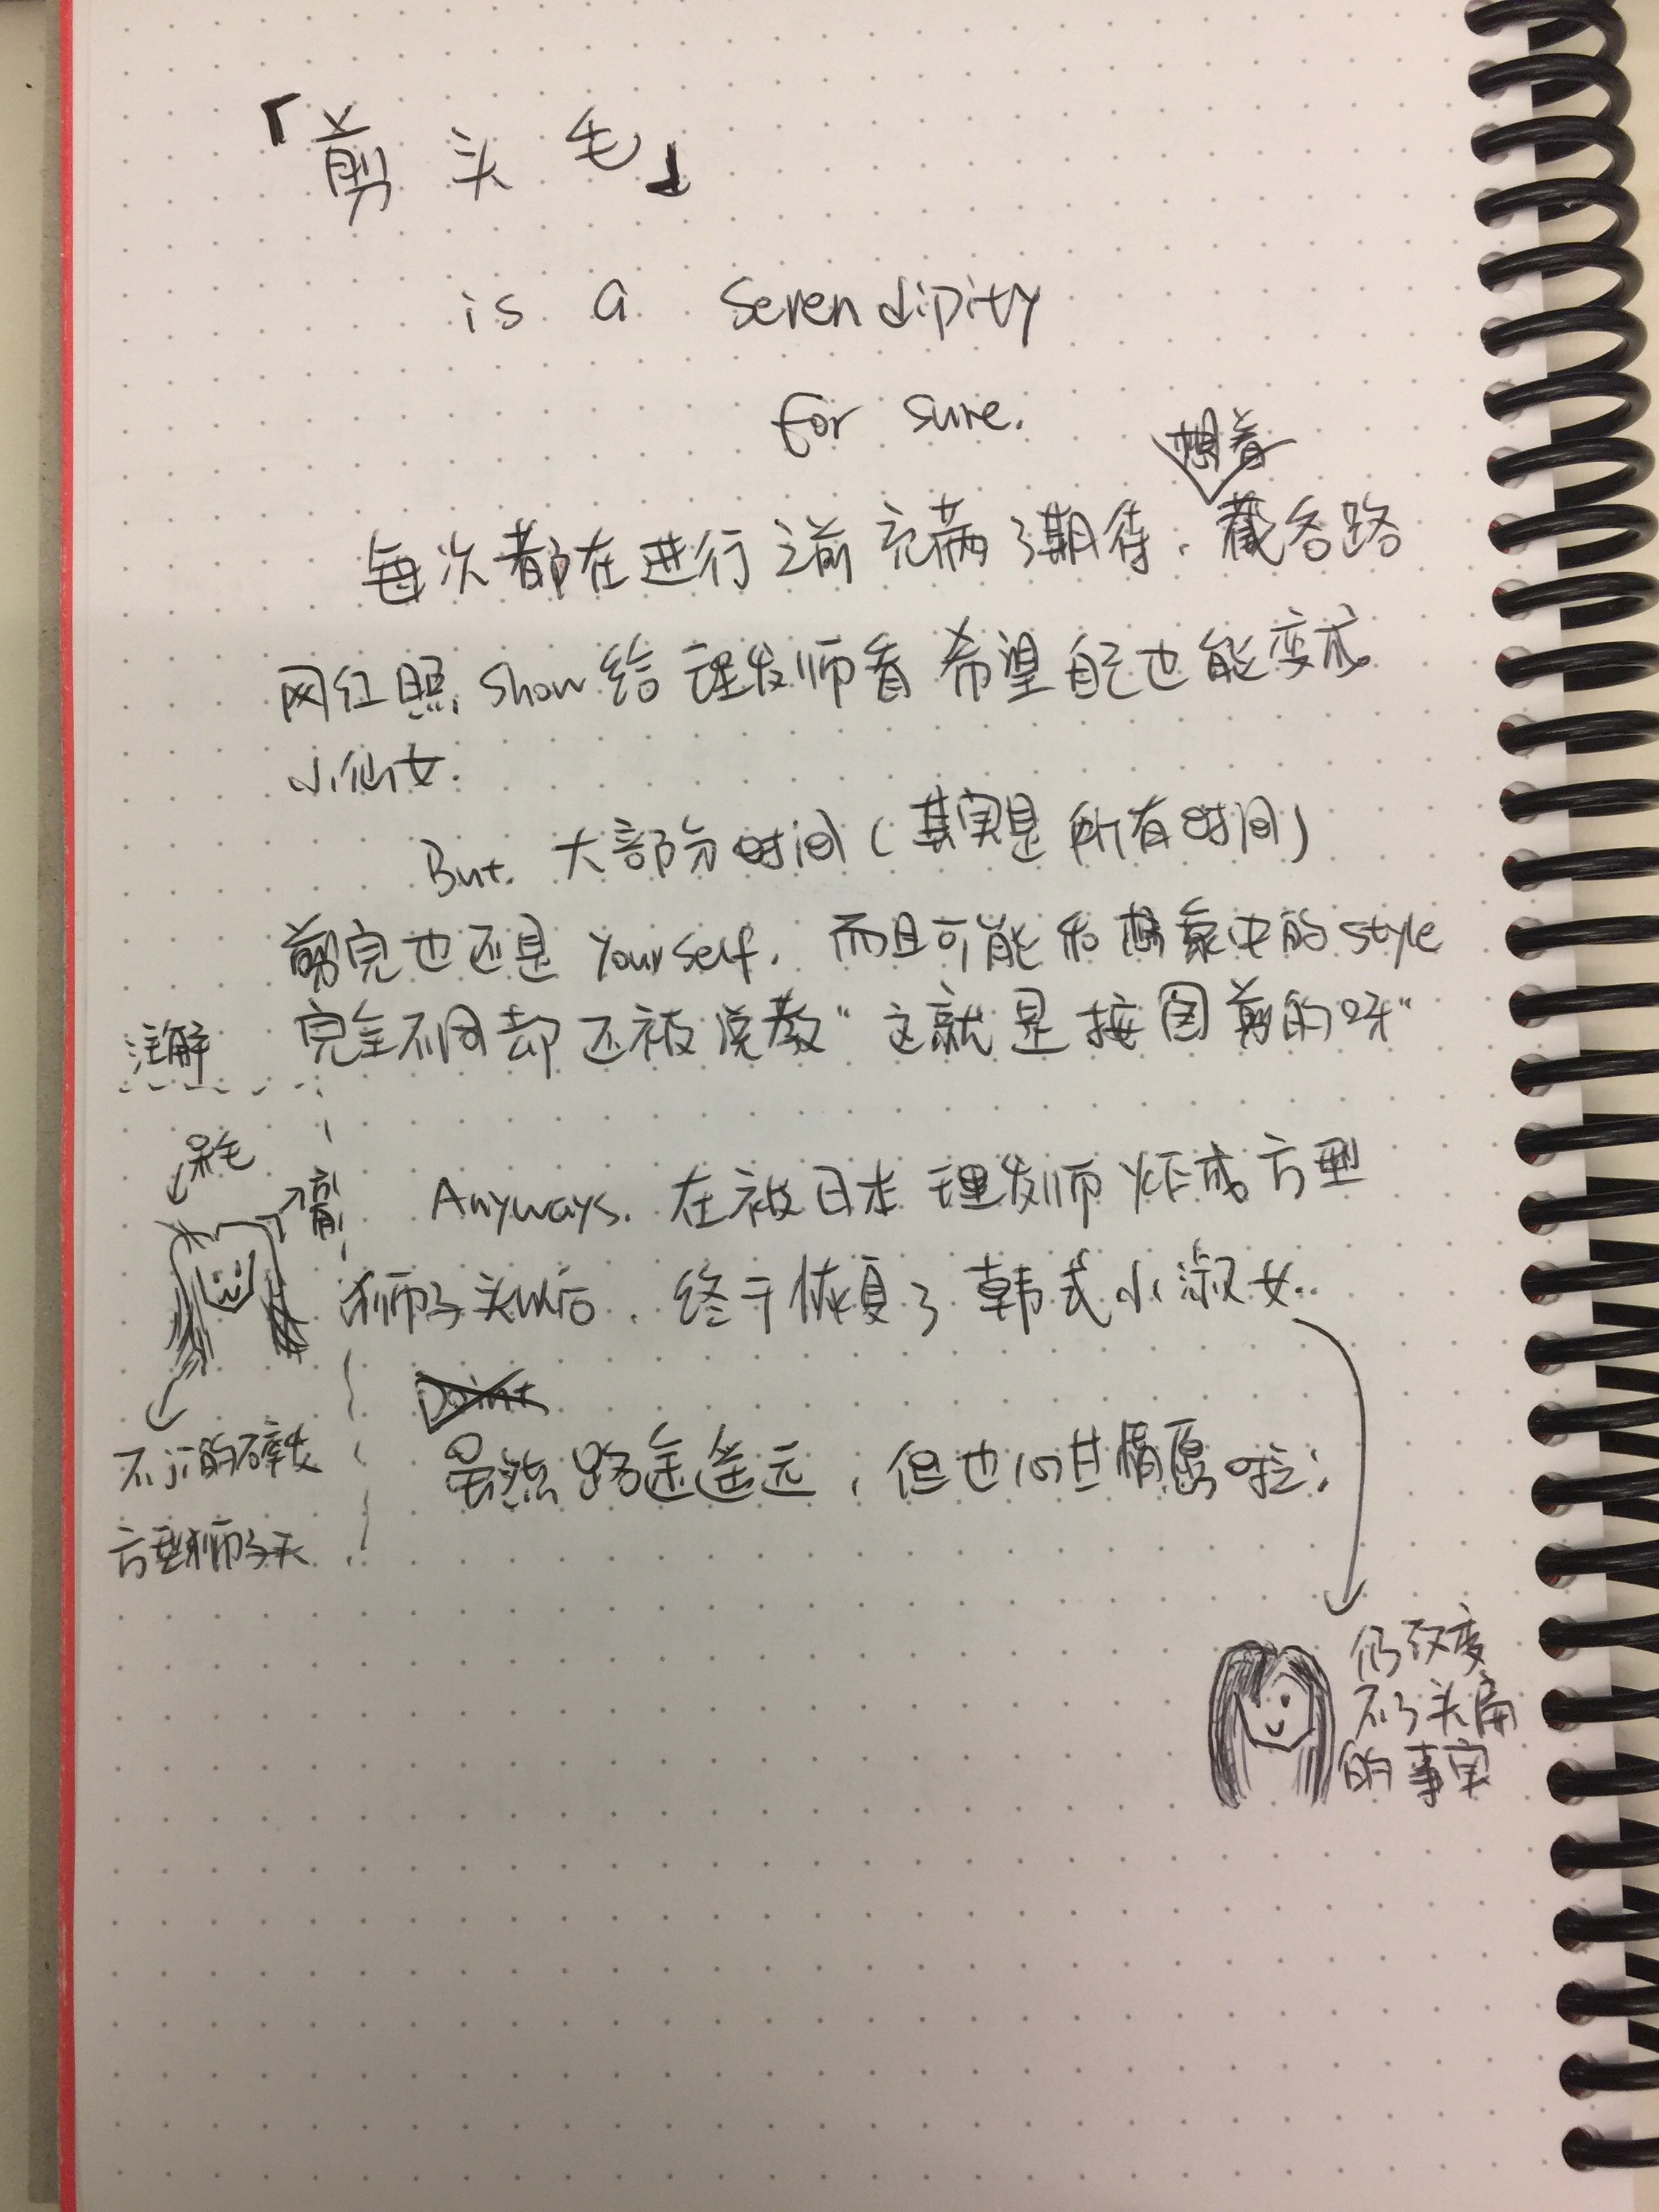 「剪头毛」
is a Serendipity
for sure.
想着
每次都在进行之前充满了期待，截各路
网红照 show 给理发师看 希望自己也能变成
小仙女.
But. 大部分时间（其实是所有时间）
剪完也还是 yourself. 而且可能和想象中的 style
完全不同却还被说教“这就是按图剪的呀”
注解
呆毛
Anyways. 在被日本理发师炸成方型
狮子头以后，终于恢复了韩式小淑女..
Point
虽然路途遥远，但也心甘情愿啦；
不小的碎发
方型狮子头
仍改变
不了头扁
的事实